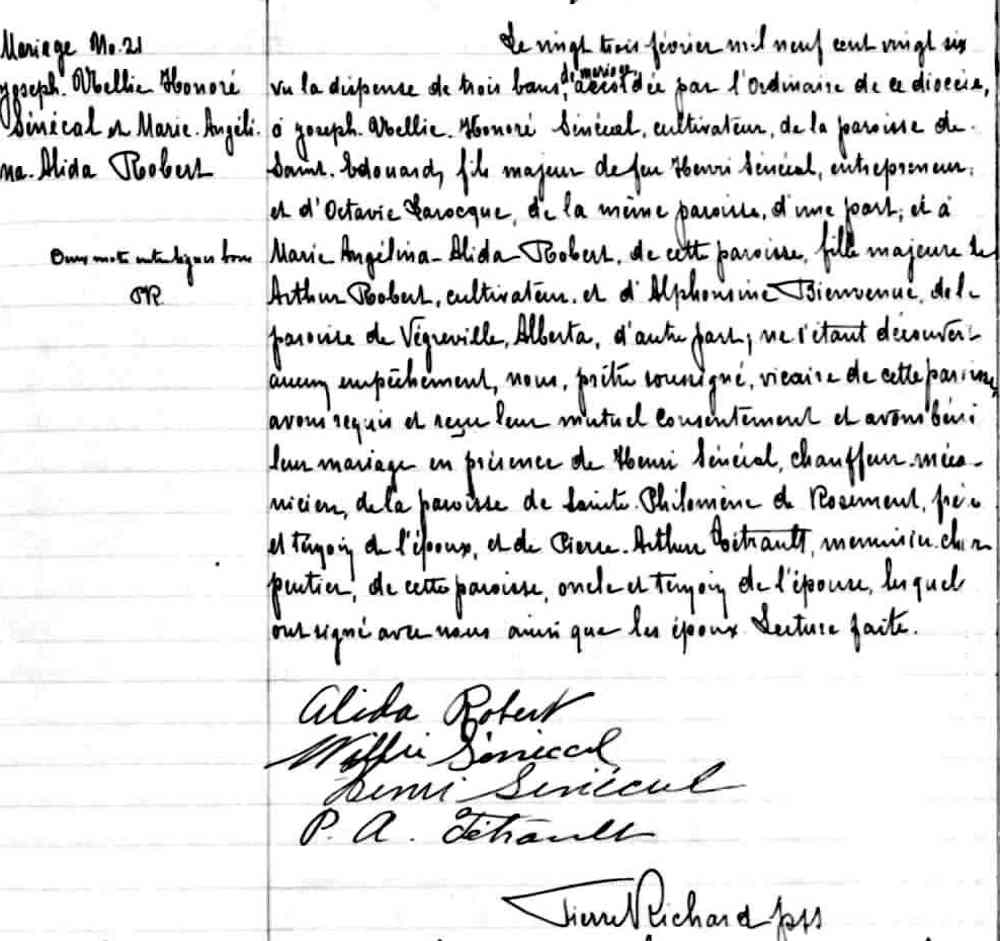 Mariage No. 21
Joseph. Wellie Honoré
Sénécal et Marie. Angéli-
na. Alida Robert
Deux mots entre lignes bons
PR
Le vingt trois février mil neuf cent vingt six
vu la dispense de trois bans, de mariage accordée par l'Ordinaire de ce diocèse,
à Joseph. Wellie. Honoré Sénécal, cultivateur, de la paroisse de
Saint. Edouard, fils majeur de feu Henri Sénécal, entrepreneur,
et d'Octavie Larocque, de la même paroisse, d'une part, et à
Marie Angélina-Alida-Robert, de cette paroisse, fille majeure de
Arthur Robert, cultivateur. et d'Alphonsine Bienvenue, de la
paroisse de Végreville, Alberta, d'autre part; ne s'étant découvert
aucun empêchement, nous, prêtre soussigné, vicaire de cette paroisse,
avons requis et reçu leur mutuel consentement et avons béni
leur mariage en présence de Henri Sénécal, chauffeur-méca-
nicien, de la paroisse de Sainte. Philomène de Rosemont, frère
et témoin de l'époux, et de Pierre. Arthur Tétrault, menuisier. char
pentier, de cette paroisse, oncle et témoin de l'épouse, lesquels
ont signé avec nous ainsi que les époux. Lecture faite.
Alida Robert
Willie Sénécal
Henri Senécal
P. A. Tétrault
Pierre Richard pss